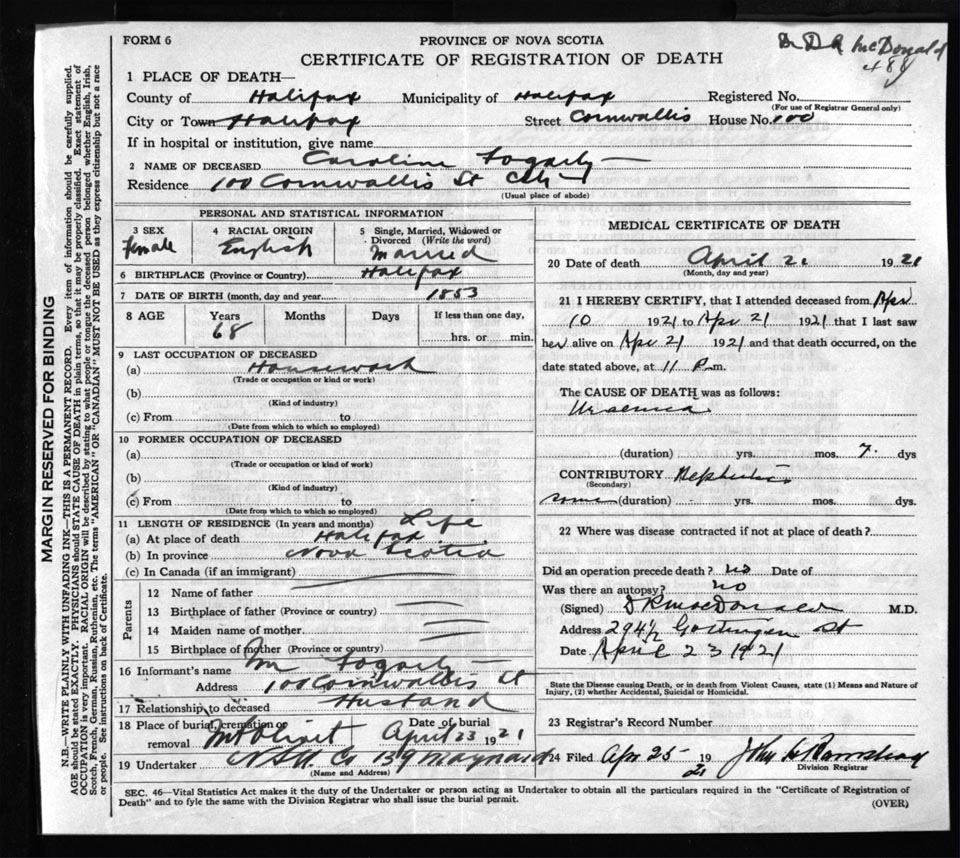 FORM 6
PROVINCE OF NOVA SCOTIA
Dr D R McDonald
488
CERTIFICATE OF REGISTRATION OF DEATH
1 PLACE OF DEATH—
County of Halifax Municipality of Halifax Registered No.
(For use of Registrar General only)
City or Town Halifax Street Cornwallis House No. 100
If in hospital or institution, give name
2 NAME OF DECEASED Caroline Fogarty
Residence 100 Cornwallis St City
(Usual place of abode)
PERSONAL AND STATISTICAL INFORMATION
3 SEX 4 RACIAL ORIGIN 5 Single, Married, Widowed or Divorced (Write the word)
Female English Married
6 BIRTHPLACE (Province or Country) Halifax
7 DATE OF BIRTH (month, day and year) 1853
8 AGE Years Months Days If less than one day,
68 hrs. or min.
9 LAST OCCUPATION OF DECEASED
(a) Housework
(Trade or occupation or kind or work)
(b)
(Kind of industry)
(c) From to
(Date from which to which so employed)
10 FORMER OCCUPATION OF DECEASED
(a)
(Trade or occupation or kind of work)
(b)
(Kind of industry)
(c) From to
(Date from which to which so employed)
11 LENGTH OF RESIDENCE (In years and months) Life
(a) At place of death Halifax
(b) In province Nova Scotia
(c) In Canada (if an immigrant)
Parents
12 Name of father
13 Birthplace of father (Province or country)
14 Maiden name of mother
15 Birthplace of mother (Province or country)
16 Informant's name Wm Fogarty
Address 100 Cornwallis St
17 Relationship to deceased Husband
18 Place of burial, cremation or removal Mt Olivet Date of burial April 23 1921
19 Undertaker N S U Co 139 Maynard
(Name and Address)
MEDICAL CERTIFICATE OF DEATH
20 Date of death April 21 1921
(Month, day and year)
21 I HEREBY CERTIFY, that I attended deceased from Apr
10 1921 to Apr 21 1921 that I last saw
her alive on Apr 21 1921 and that death occurred, on the
date stated above, at 11 P.m.
The CAUSE OF DEATH was as follows:
Uraemia
(duration) yrs. mos. 7 dys
CONTRIBUTORY Nephritis
(Secondary)
some (duration) yrs. mos. dys.
22 Where was disease contracted if not at place of death?
Did an operation precede death? no Date of
Was there an autopsy? no
(Signed) D R MacDonald M.D.
Address 294½ Gottingen St
Date April 23 1921
State the Disease causing Death, or in death from Violent Causes, state (1) Means and Nature of
Injury, (2) whether Accidental, Suicidal or Homicidal.
23 Registrar's Record Number
24 Filed Apr 25 1921 John
Division Registrar
SEC. 46—Vital Statistics Act makes it the duty of the Undertaker or person acting as Undertaker to obtain all the particulars required in the "Certificate of Registration of
Death" and to fyle the same with the Division Registrar who shall issue the burial permit.
(OVER)
MARGIN RESERVED FOR BINDING
N.B.—WRITE PLAINLY WITH UNFADING INK—THIS IS A PERMANENT RECORD. Every item of information should be carefully supplied.
AGE should be stated EXACTLY. PHYSICIANS should STATE CAUSE OF DEATH in plain terms, so that it may be properly classified. Exact statement of
OCCUPATION is very important. RACIAL ORIGIN will be described by stating to what people or tongue the deceased person belonged whether English, Irish,
Scotch, French, German, Russian, Ruthenian, etc. The terms "AMERICAN" OR "CANADIAN" MUST NOT BE USED as they express citizenship but not a race
or people. See instructions on back of Certificate.